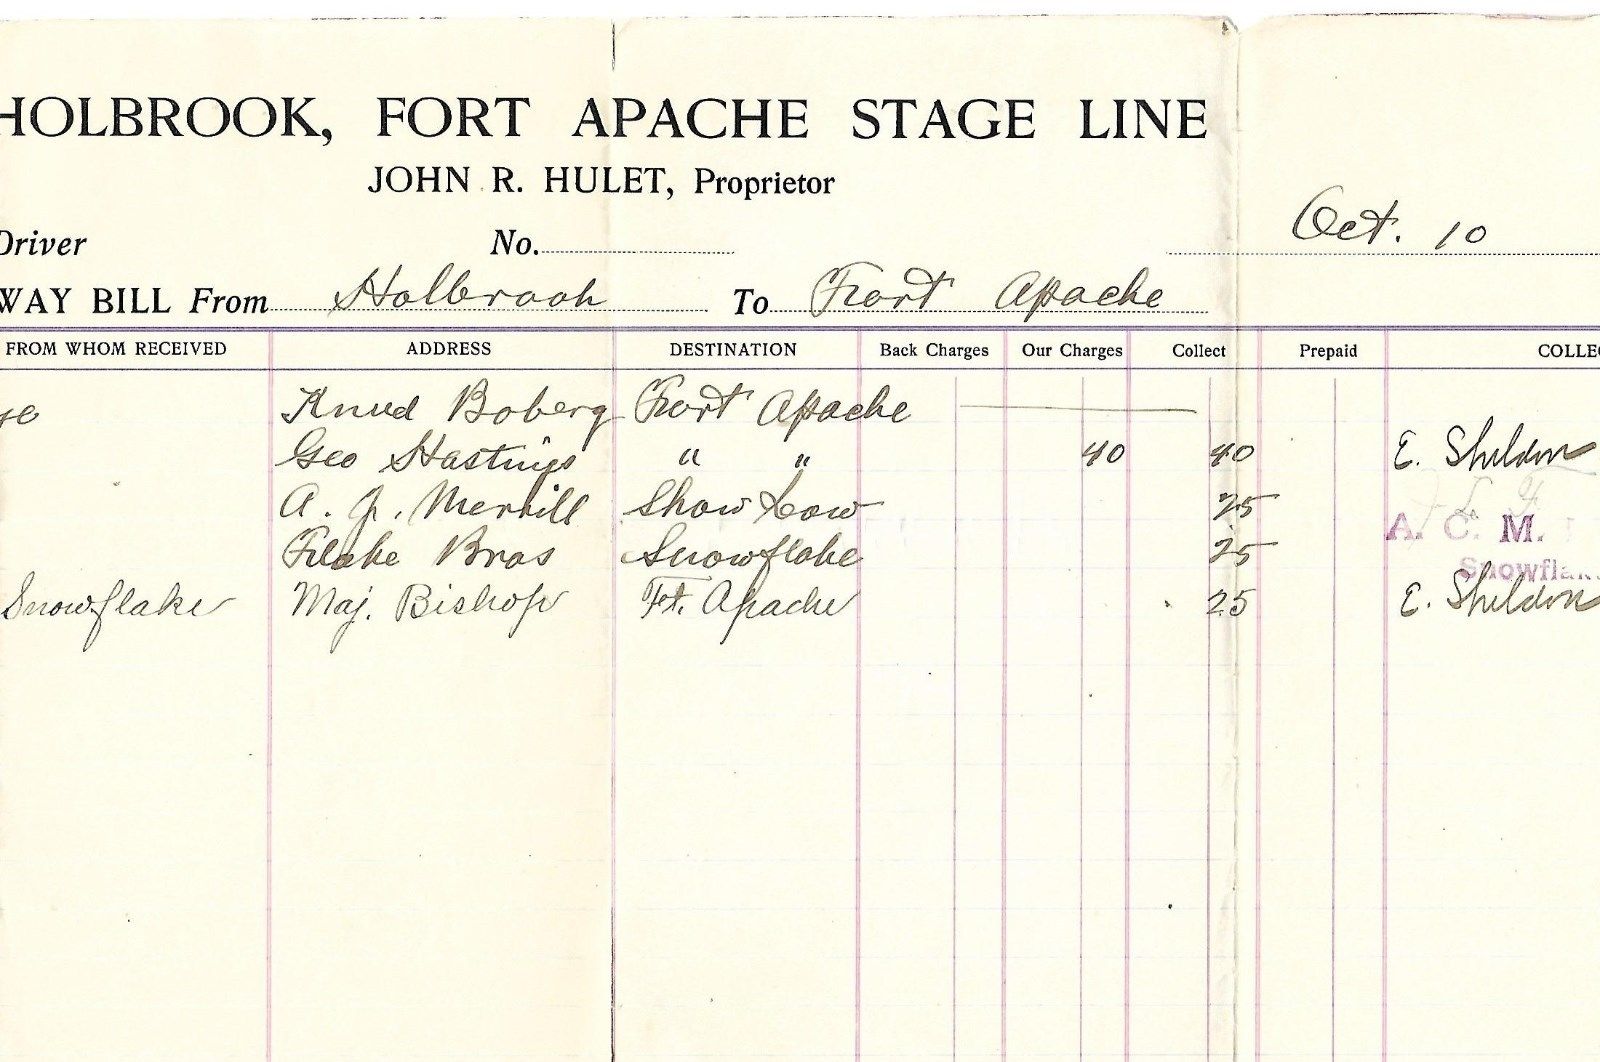 HOLBROOK, FORT APACHE STAGE LINE
JOHN R. HULET, Proprietor
Oct. 10
Driver No.
WAY BILL From Holbrook To Fort Apache
FROM WHOM RECEIVED ADDRESS DESTINATION Back Charges Our Charges Collect Prepaid COLLEC
Knud Boberg Fort Apache
Geo Hastings " " 40 40 E. Sheldon
A. J. Merrill Show Low 25
A. C. M.
Flake Bros Snowflake 25
Snowflake
Snowflake Maj. Bishop Ft. Apache 25 E. Sheldon